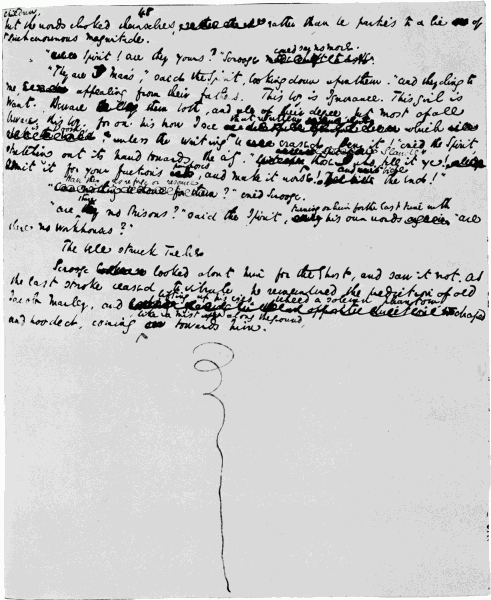 children,
48
but the words choked themselves, rather than be parties to a lie of
such enormous magnitude.
"Spirit! are they yours?" Scrooge could say no more.
"They are Man's," said the Spirit, looking down upon them. "and they cling to
me, appealing from their fathers. This boy is Ignorance. This girl is
Want. Beware them both, and all of their degree, but most of all
beware this boy, for on his brow I see that written which is
, unless the writing be erased. Deny it!" cried the Spirit,
stretching out its hand towards the city. " those who tell it ye!
Admit it for your factious purposes, and make it worse. And bide the end!"
"Have they no refuge or resource?" cried Scrooge.
"Are there no Prisons?" said the Spirit, turning on him for the last time with his own words. "are
there no workhouses?"
The bell struck Twelve.
Scrooge looked about him for the Ghost, and saw it not. As
the last stroke ceased to vibrate, he remembered the prediction of old
Jacob Marley, and lifting up his eyes, beheld a solemn phantom, draped
and hooded, coming like a mist along the ground, towards him.